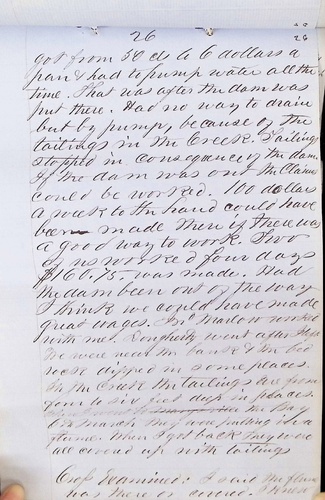 26
26
got from 50 cts to 6 dollars a
pan & had to pump water all the
time. That was after the dam was
put there. Had no way to drain
but by pump, because of the
tailings in the Creek. Tailings
stopped in consequence of the dam
If the dam was out the Claim
could be worked. 100 dollars
a week to the hand could have
been made then if there was
a good way to work. Two
of us worked four days
$160.75 was made. Had
the dam been out of the way
I think we could have made
great wages. Marlow worked
with me. Dougherty went after
We were near the bank & the bed
rock dipped in some places.
In the Creek the tailings are from
four to six feet deep in places.
the Bay
in March they were putting in a
flume. When I got back they were
all covered up with tailings
Cross Examined: I said the flume
was there or covered. I know